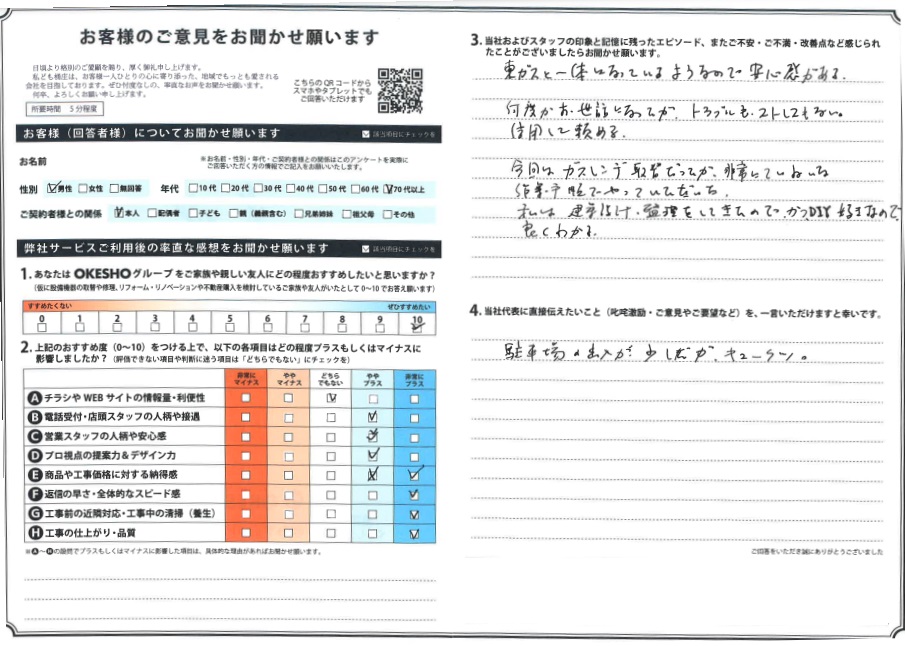 お客様のご意見をお聞かせ願います
日頃より格別のご愛顧を賜り、厚く御礼申し上げます。
私ども桶庄は、お客様一人ひとりの心に寄り添った、地域でもっとも愛される
会社を目指しております。ぜひ忖度なしの、率直なお声をお聞かせください。
何卒、よろしくお願い申し上げます。
所要時間 5分程度
こちらのQRコードから
スマホやタブレットでも
ご回答いただけます
お客様（回答者様）についてお聞かせ願います
☑ 該当項目にチェックを
お名前
※お名前・性別・年代・ご契約者様との関係はこのアンケートを実際に
ご回答いただく方の情報でご記入をお願いいたします。
性別 ☑男性 □女性 □無回答 年代 □10代 □20代 □30代 □40代 □50代 □60代 ☑70代以上
ご契約者様との関係 ☑本人 □配偶者 □子ども □親（義親含む） □兄弟姉妹 □祖父母 □その他
弊社サービスご利用後の率直な感想をお聞かせ願います
☑ 該当項目にチェックを
1. あなたは OKESHO グループをご家族や親しい友人にどの程度おすすめしたいと思いますか？
（仮に設備機器の取替や修理、リフォーム・リノベーションや不動産購入を検討しているご家族や友人がいたとして0〜10でお答え願います）
すすめたくない ぜひすすめたい
0 1 2 3 4 5 6 7 8 9 10
□ □ □ □ □ □ □ □ □ □ ☑
2. 上記のおすすめ度（0〜10）をつける上で、以下の各項目はどの程度プラスもしくはマイナスに
影響しましたか？（評価できない項目や判断に迷う項目は「どちらでもない」にチェックを）
非常にマイナス ややマイナス どちらでもない ややプラス 非常にプラス
A チラシやWEBサイトの情報量・利便性 □ □ ☑ □ □
B 電話受付・店頭スタッフの人柄や接遇 □ □ □ ☑ □
C 営業スタッフの人柄や安心感 □ □ □ ☑ □
D プロ視点の提案力＆デザイン力 □ □ □ ☑ □
E 商品や工事価格に対する納得感 □ □ □ ☒ ☑
F 返信の早さ・全体的なスピード感 □ □ □ □ ☑
G 工事前の近隣対応・工事中の清掃（養生） □ □ □ □ ☑
H 工事の仕上がり・品質 □ □ □ □ ☑
※A〜Hの設問でプラスもしくはマイナスに影響した項目は、具体的な理由があればお聞かせ願います。
3. 当社およびスタッフの印象と記憶に残ったエピソード、またご不安・ご不満・改善点など感じられ
たことがございましたらお聞かせ願います。
東ガスと一体になっているようなので安心感がある。
何度かお世話になってるが、トラブルもストレスもない。
信用して頼める。
今回はガスレンジ取替だったが、非常にていねいな
作業・手際でやっていただいた。
私は建築設計・監理をしてきたので、かつDIY好きなので
良くわかる。
4. 当社代表に直接伝えたいこと（叱咤激励・ご意見やご要望など）を、一言いただけますと幸いです。
駐車場の出入が少しだが、キュークツ。
ご回答をいただき誠にありがとうございました